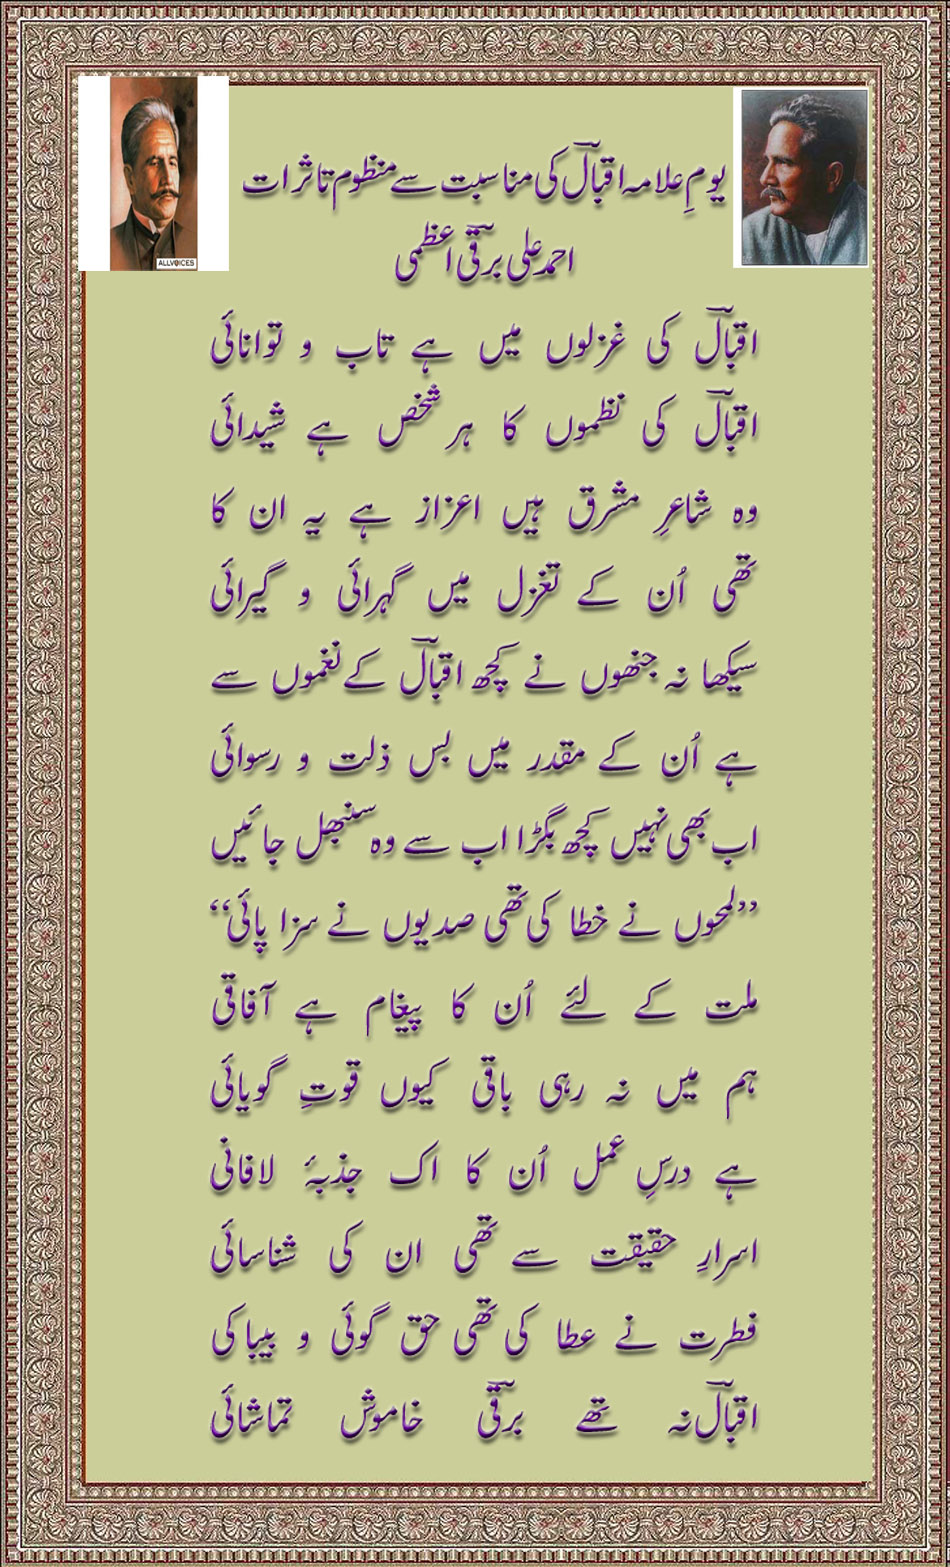 یومِ علامہ اقبالؔ کی مناسبت سے منظوم تاثرات
احمد علی برقیؔ اعظمی
ALLVOICES
اقبالؔ کی غزلوں میں ہے تاب و توانائی
اقبالؔ کی نظموں کا ہر شخص ہے شیدائی
وہ شاعرِ مشرق ہیں اعزاز ہے یہ ان کا
تھی اُن کے تغزل میں گہرائی و گیرائی
سیکھا نہ جنھوں نے کچھ اقبالؔ کے نغموں سے
ہے اُن کے مقدر میں بس ذلت و رسوائی
اب بھی نہیں کچھ بگڑا اب سے وہ سنبھل جائیں
’’لمحوں نے خطا کی تھی صدیوں نے سزا پائی‘‘
ملت کے لئے اُن کا پیغام ہے آفاقی
ہم میں نہ رہی باقی کیوں قوتِ گویائی
ہے درسِ عمل اُن کا اک جذبۂ لافانی
اسرارِ حقیقت سے تھی ان کی شناسائی
فطرت نے عطا کی تھی حق گوئی و بیباکی
اقبالؔ نہ تھے برقیؔ خاموش تماشائی